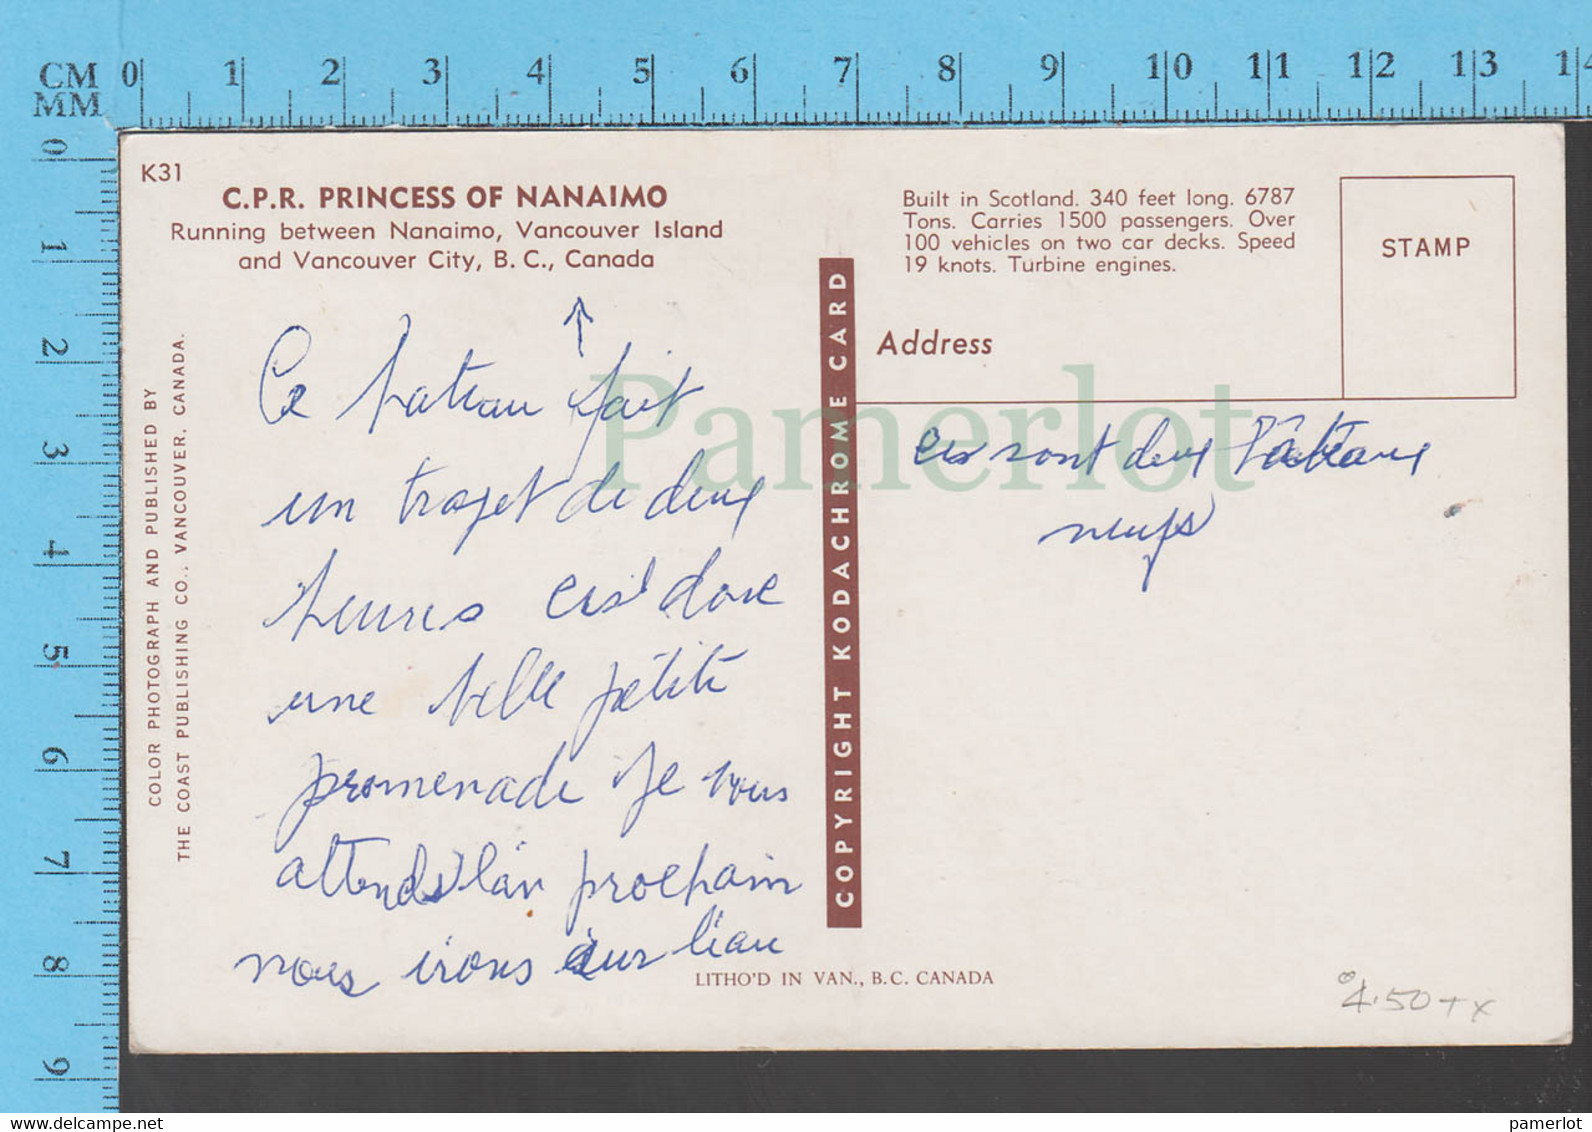 CM 0 1 2 3 4 5 6 7 8 9 10 11 12 13 14
MM
0
1
2
3
4
5
6
7
8
9
K31
C.P.R. PRINCESS OF NANAIMO
Running between Nanaimo, Vancouver Island
and Vancouver City, B. C., Canada
Built in Scotland. 340 feet long. 6787
Tons. Carries 1500 passengers. Over
100 vehicles on two car decks. Speed
19 knots. Turbine engines.
STAMP
Address
COLOR PHOTOGRAPH AND PUBLISHED BY
THE COAST PUBLISHING CO., VANCOUVER, CANADA.
COPYRIGHT KODACHROME CARD
Ce bateau fait
un trajet de deux
heures c'est donc
une belle pétite
promenade je vous
attends l'an prochain
nous irons sur l'eau
ces sont deux bâteaux
neufs
LITHO'D IN VAN., B.C. CANADA
4.50+tx
Pamerlot
www.delcampe.net
pamerlot